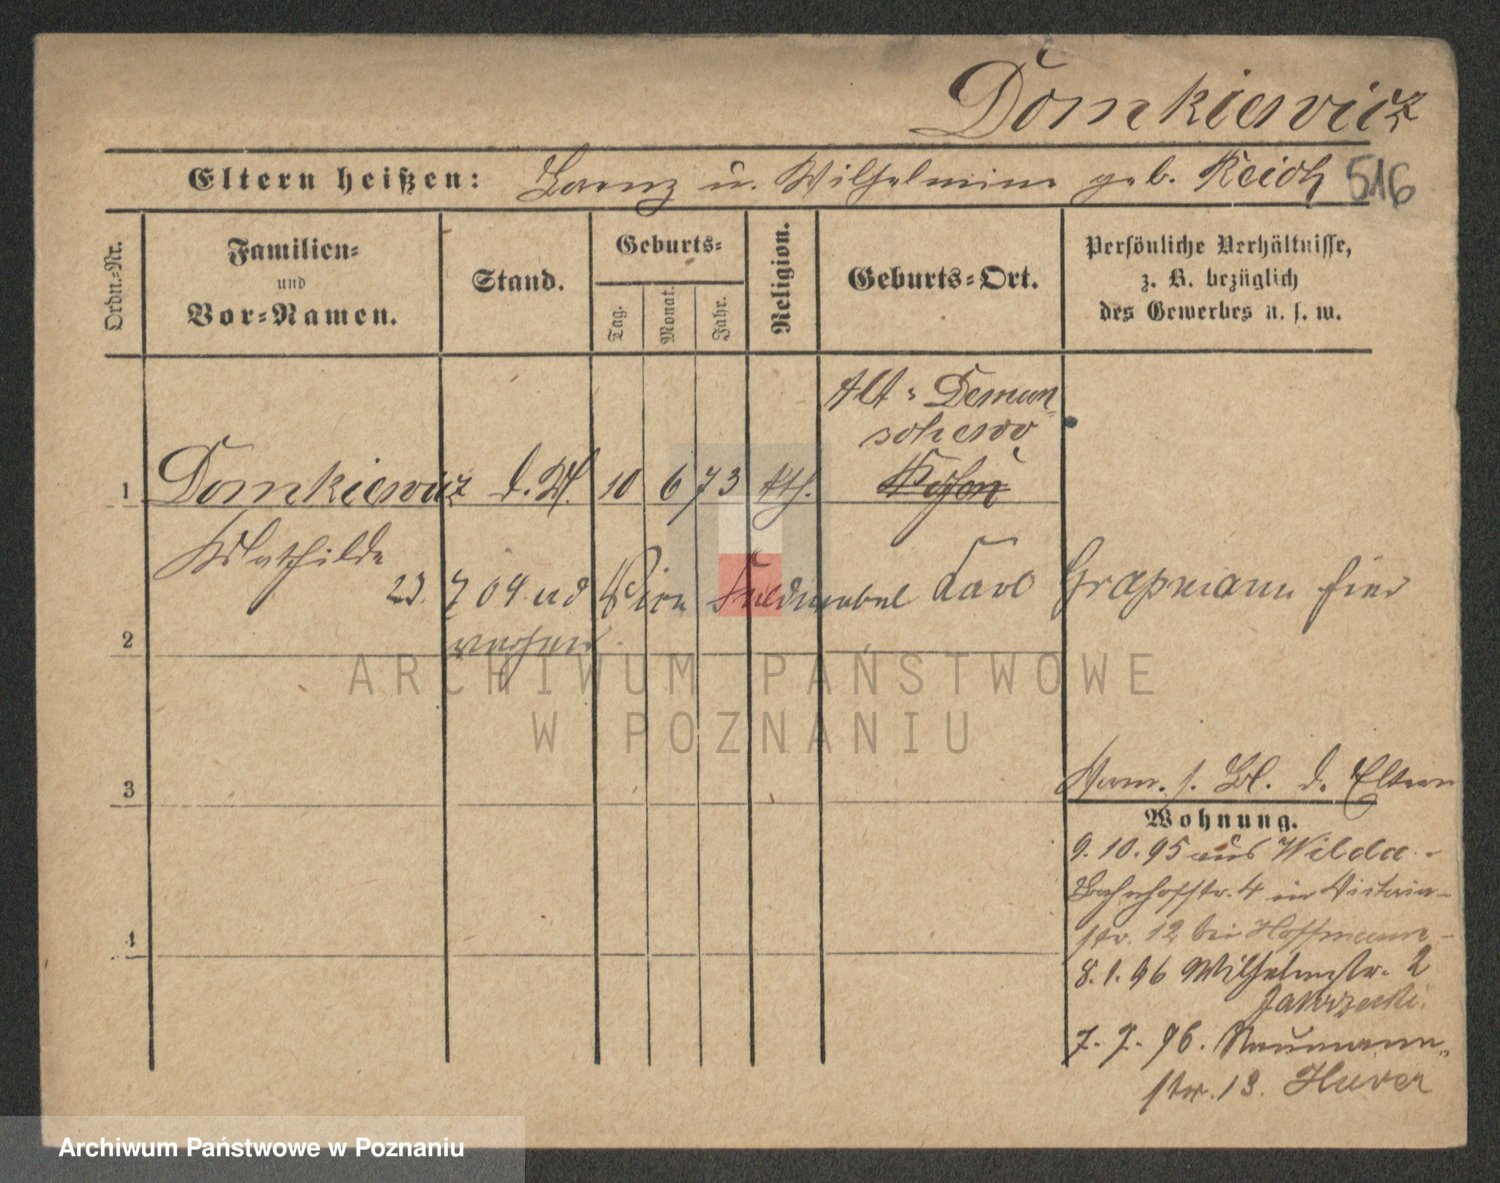 Domkiewicz
Eltern heißen: Lorenz u. Wilhelmine geb. Reich 516
Ordn.-Nr.
Familien-
und
Vor-Namen.
Stand.
Geburts-
Tag.
Monat.
Jahr.
Religion.
Geburts-Ort.
Persönliche Verhältnisse,
z. B. bezüglich
des Gewerbes u. s. w.
Alt-Deman-
schewo
1 Domkiewicz d. M. 10 6 73 kth. Posen
Mathilde
23. 7 04 Karl Grapmann hier
2
ARCHIWUM PAŃSTWOWE
W POZNANIU
3
s. Bl. d. Eltern
Wohnung.
9.10.95 aus Wilda
Bahnhofstr. 4 in Victoria-
str. 12 bei Hoffmann
8.1.96 Wilhelmstr. 2
4
7.7.96. Naumann-
str. 13.
Archiwum Państwowe w Poznaniu